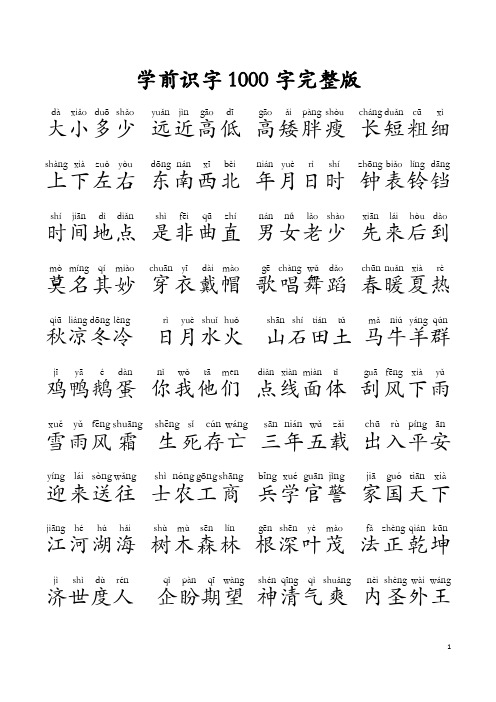 学前识字1000字完整版
dà xiǎo duō shǎo yuǎn jìn gāo dī gāo ǎi pàng shòu cháng duǎn cū xì
大小多少 远近高低 高矮胖瘦 长短粗细
shàng xià zuǒ yòu dōng nán xī běi nián yuè rì shí zhōng biǎo líng dāng
上下左右 东南西北 年月日时 钟表铃铛
shí jiān dì diǎn shì fēi qū zhí nán nǚ lǎo shào xiān lái hòu dào
时间地点 是非曲直 男女老少 先来后到
mò míng qí miào chuān yī dài mào gē chàng wǔ dǎo chūn nuǎn xià rè
莫名其妙 穿衣戴帽 歌唱舞蹈 春暖夏热
qiū liáng dōng lěng rì yuè shuǐ huǒ shān shí tián tǔ mǎ niú yáng qún
秋凉冬冷 日月水火 山石田土 马牛羊群
jī yā é dàn nǐ wǒ tā men diǎn xiàn miàn tǐ guā fēng xià yǔ
鸡鸭鹅蛋 你我他们 点线面体 刮风下雨
xuě yǔ fēng shuāng shēng sǐ cún wáng sān nián wǔ zǎi chū rù píng ān
雪雨风霜 生死存亡 三年五载 出入平安
yíng lái sòng wǎng shì nóng gōng shāng bīng xué guān jǐng jiā guó tiān xià
迎来送往 士农工商 兵学官警 家国天下
jiāng hé hú hǎi shù mù sēn lín gēn shēn yè mào fǎ zhèng qián kūn
江河湖海 树木森林 根深叶茂 法正乾坤
jì shì dù rén qǐ pàn qī wàng shén qīng qì shuǎng nèi shèng wài wáng
济世度人 企盼期望 神清气爽 内圣外王
1